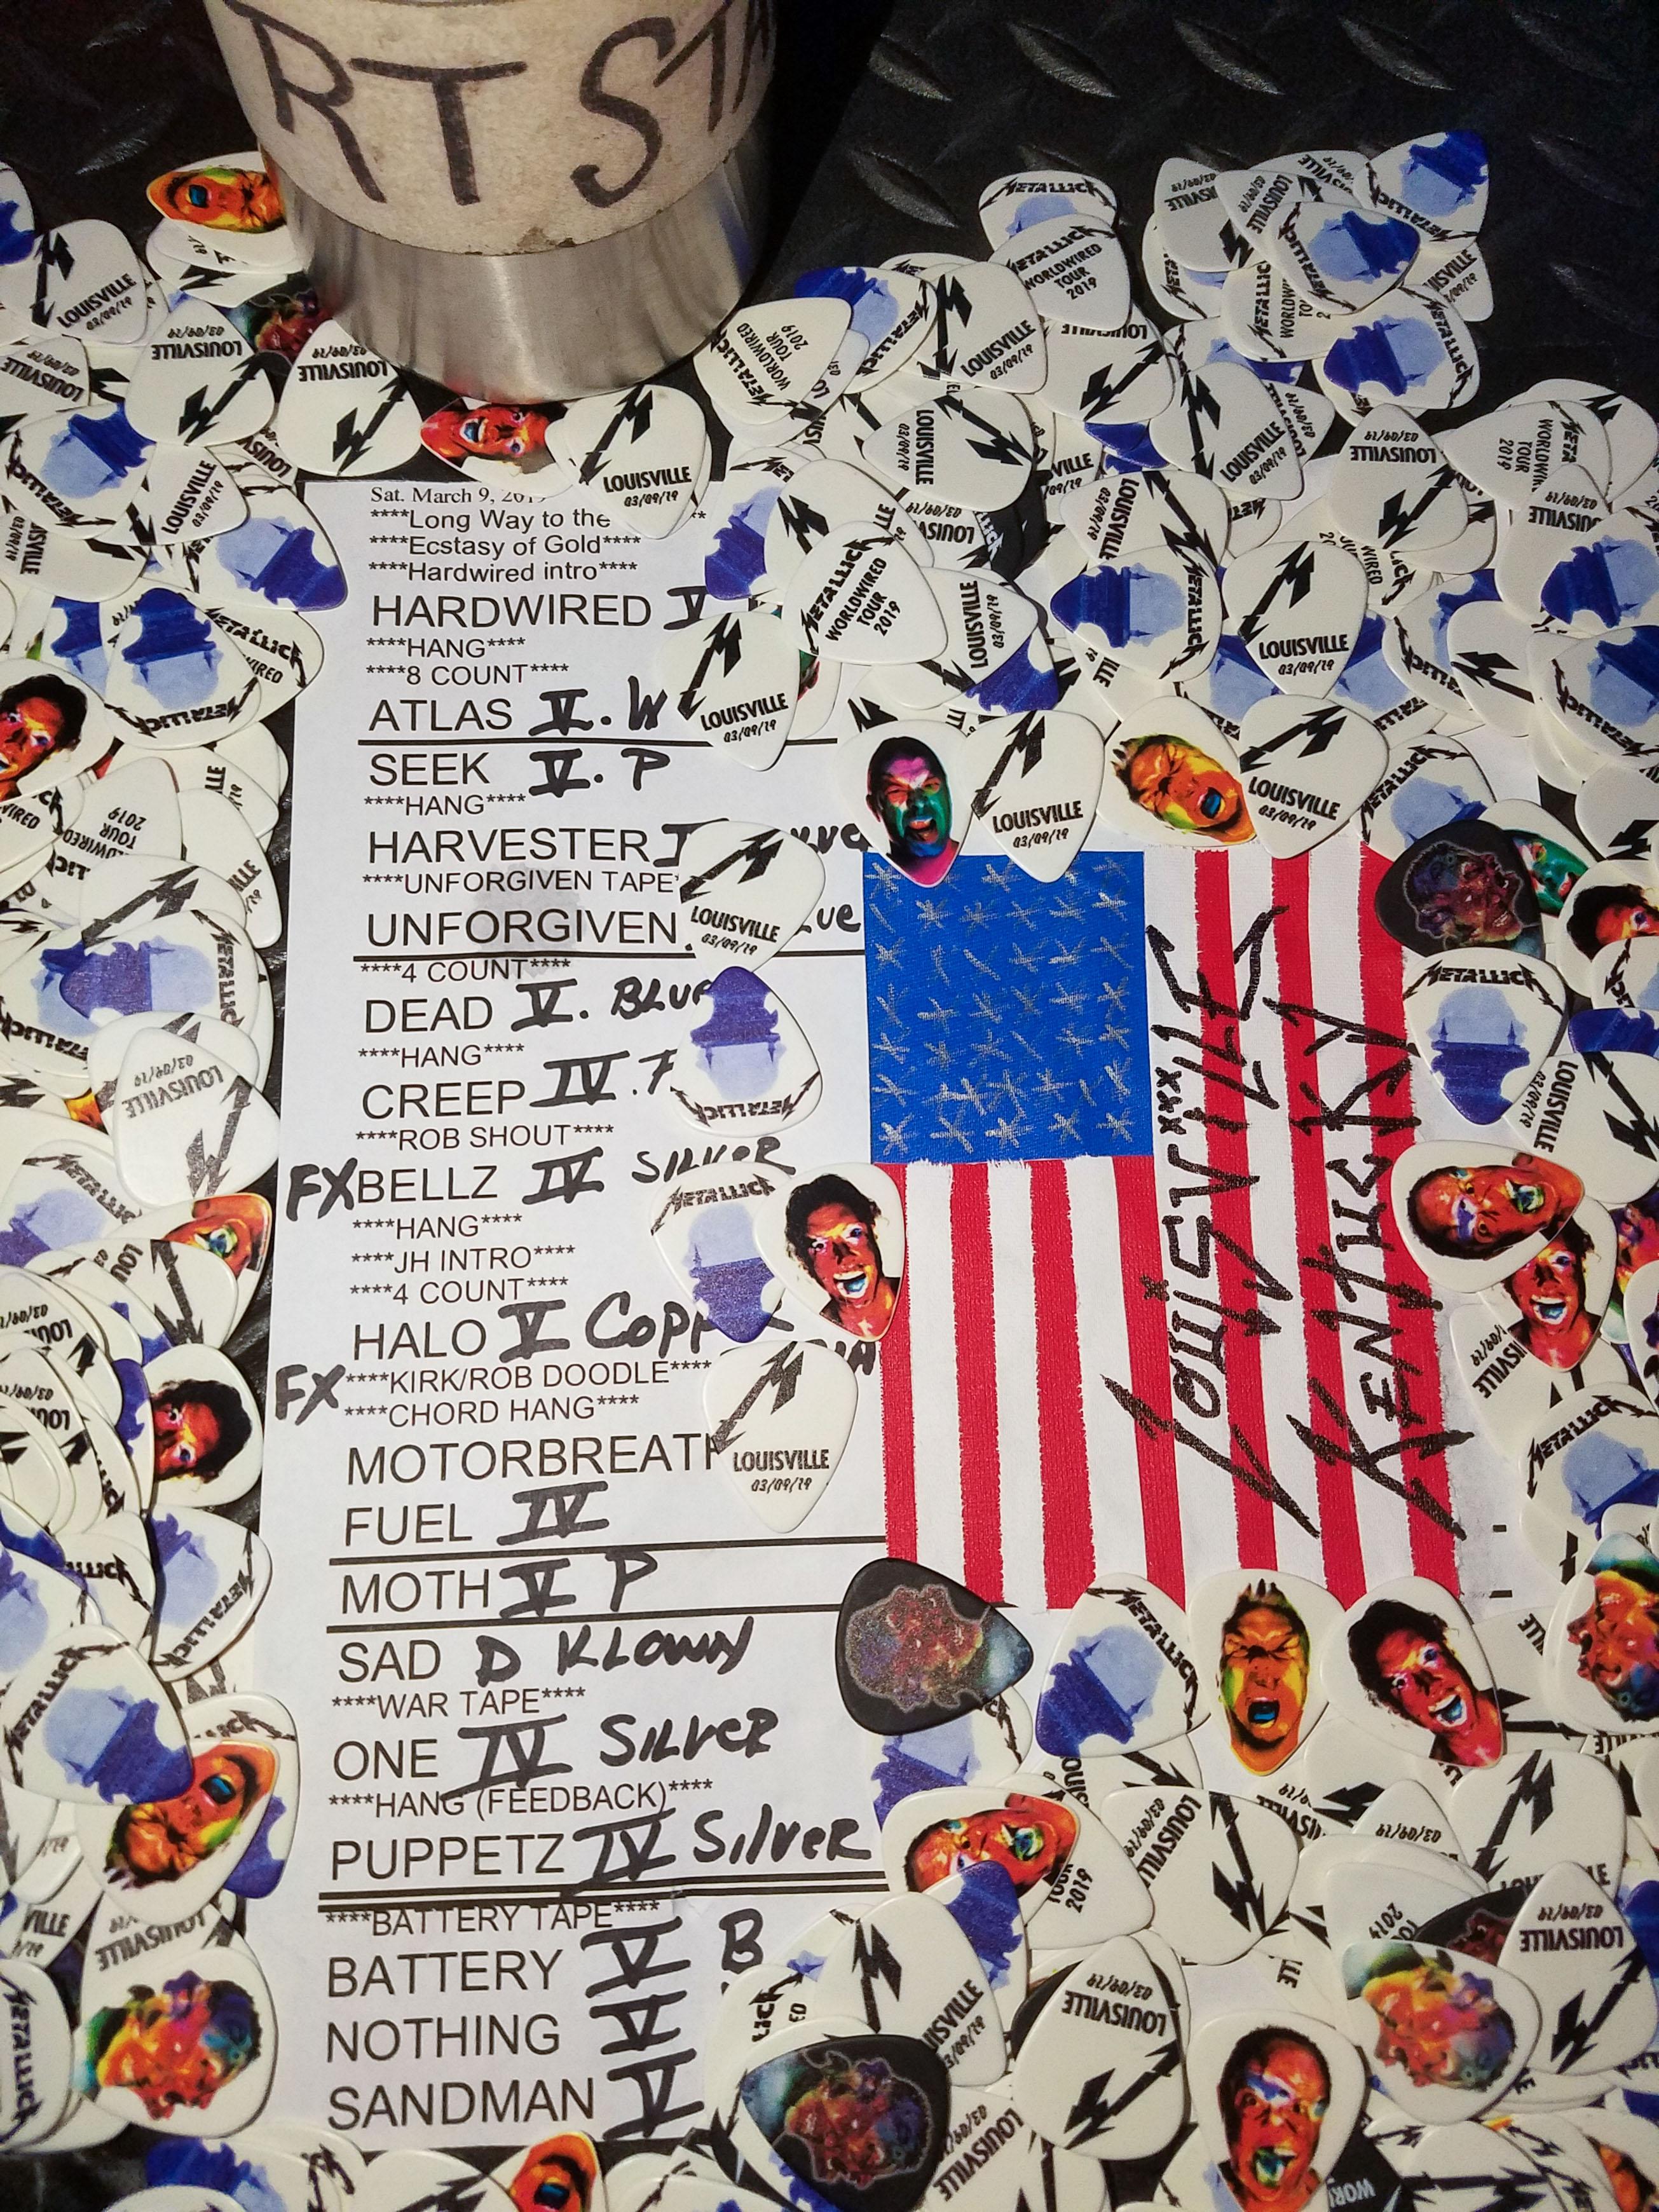 RT STA
Sat. March 9, 201
****Long Way to the
****Ecstasy of Gold****
****Hardwired intro****
HARDWIRED V
****HANG****
****8 COUNT****
ATLAS V. W
SEEK V. P
****HANG****
HARVESTER
****UNFORGIVEN TAPE
UNFORGIVEN
****4 COUNT****
DEAD V. BLUE
****HANG****
CREEP IV.
****ROB SHOUT****
FX BELLZ IV SILVER
****HANG****
****JH INTRO****
****4 COUNT****
HALO V COPP
FX ****KIRK/ROB DOODLE****
****CHORD HANG****
MOTORBREATH
FUEL IV
MOTH V P
SAD D KLOWN
****WAR TAPE****
ONE IV SILVER
****HANG (FEEDBACK)****
PUPPETZ IV SilveR
****BATTERY TAPE****
BATTERY V B
NOTHING V
SANDMAN V
LOUISVILLE
KENTUCKY
METALLICA
WORLDWIRED
TOUR
2019
LOUISVILLE
03/09/19